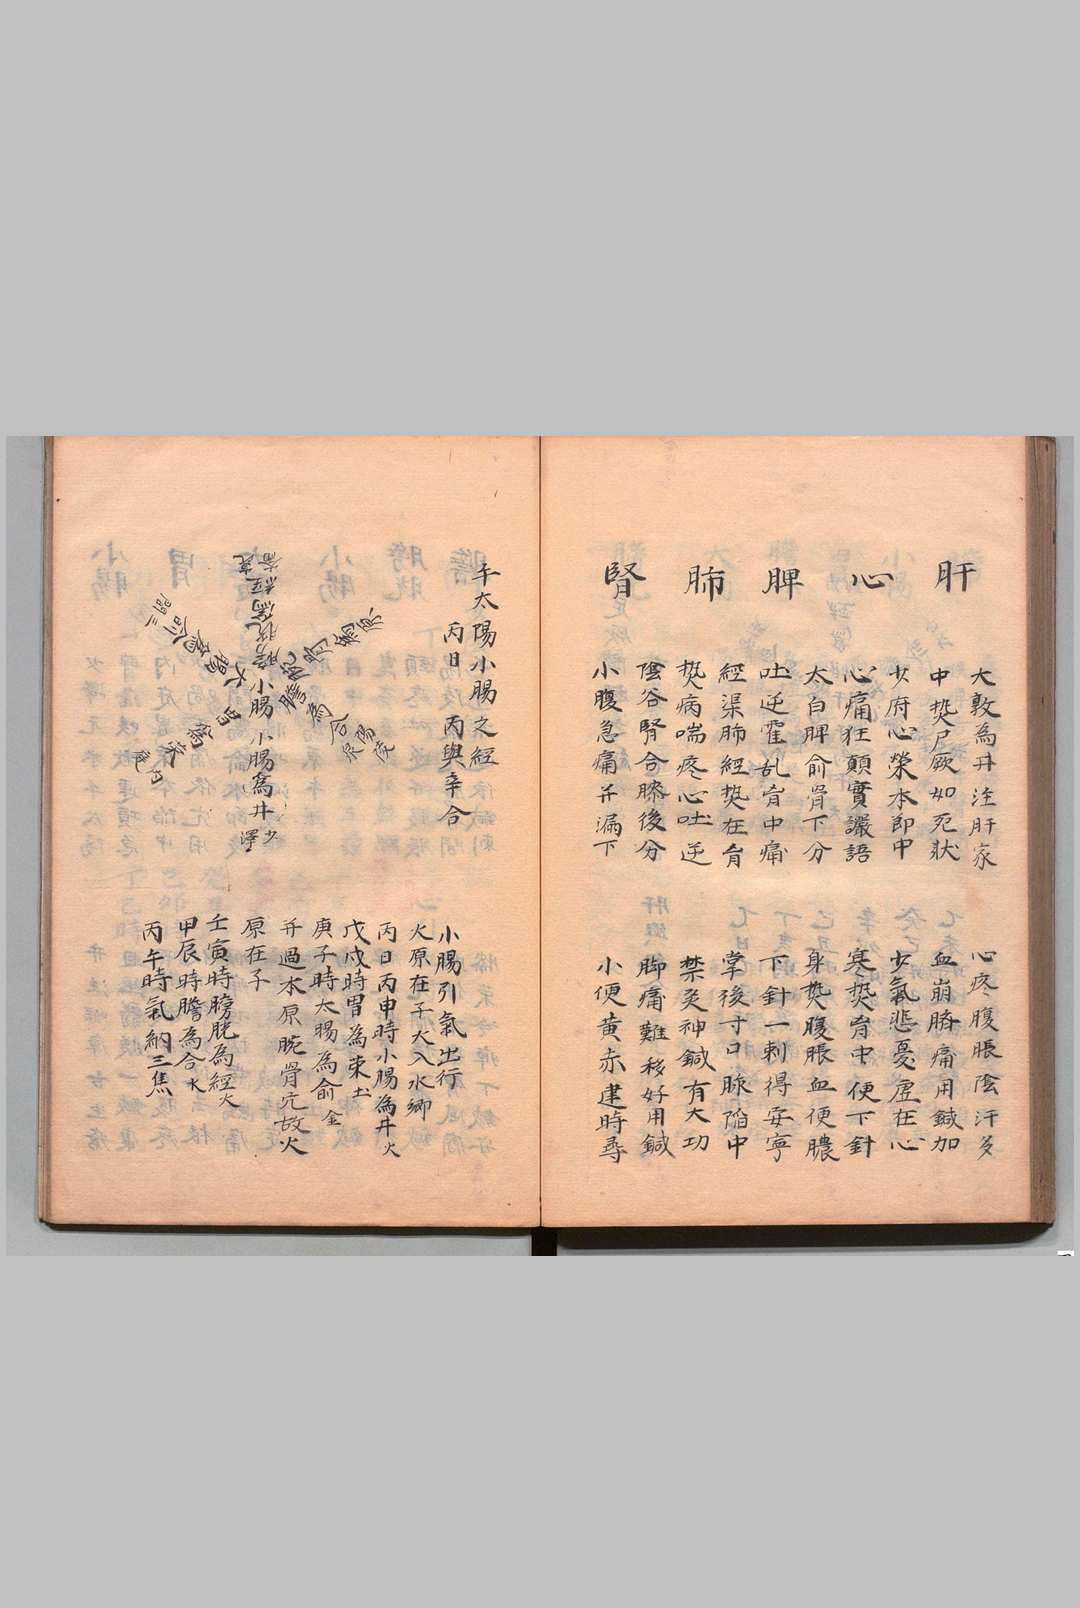 肝
大敦為井注肝家　心疼腹脹陰汗多
中㷫尸厥如死狀　血崩臍痛用鍼加
心
少府心榮本節中　少氣悲憂虛在心
心痛狂顛實讝語　寒㷫胷中便下針
脾
太白脾俞骨下分　身㷫腹脹血便膿
吐逆霍乱胷中痛　下針一刺得安寧
肺
經渠肺經㷫在胷　掌後寸口脉陷中
㷫病喘疼心吐逆　禁灸神鍼有大功
腎
陰谷腎合膝後分　脚痛難移好用鍼
小腹急痛并漏下　小便黃赤建時尋
手太陽小腸之經
丙日　丙與辛合
原
為合
陽陵
小腸
小腸為井
少澤
小腸引氣出行
火原在子火入水鄉
丙日丙申時小腸為井火
戊戌時胃為榮土
庚子時大腸為俞金
并過本原腕骨穴故火
原在子
壬寅時膀胱為經火
甲辰時膽為合水
丙午時氣納三焦